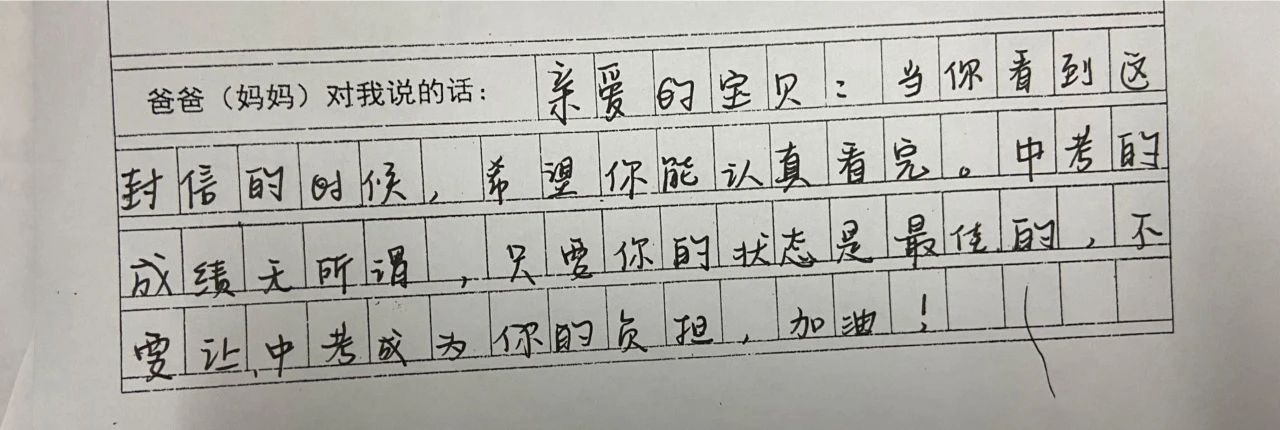 爸爸（妈妈）对我说的话：亲爱的宝贝：当你看到这
封信的时候，希望你能认真看完。中考的
成绩无所谓，只要你的状态是最佳的，不
要让中考成为你的负担，加油！